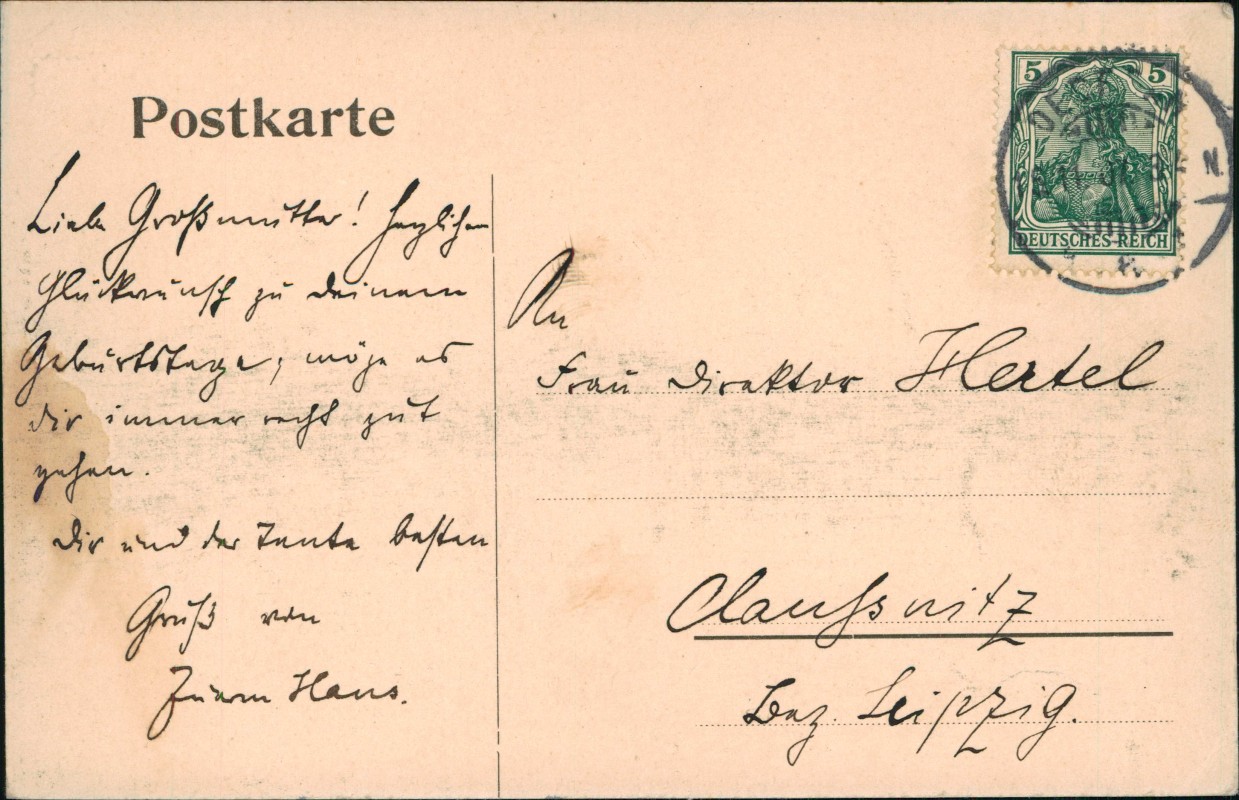 Postkarte
Liebe Großmutter! Herzlichen
Glückwunsch zu Deinem
Geburtstage, möge es
Dir immer recht gut
gehen.
Dir und der Tante besten
Gruß von
Eurem Hans.
5 5
DEUTSCHES-REICH
An
Frau Direktor Hertel
Claussnitz
Bez. Leipzig.